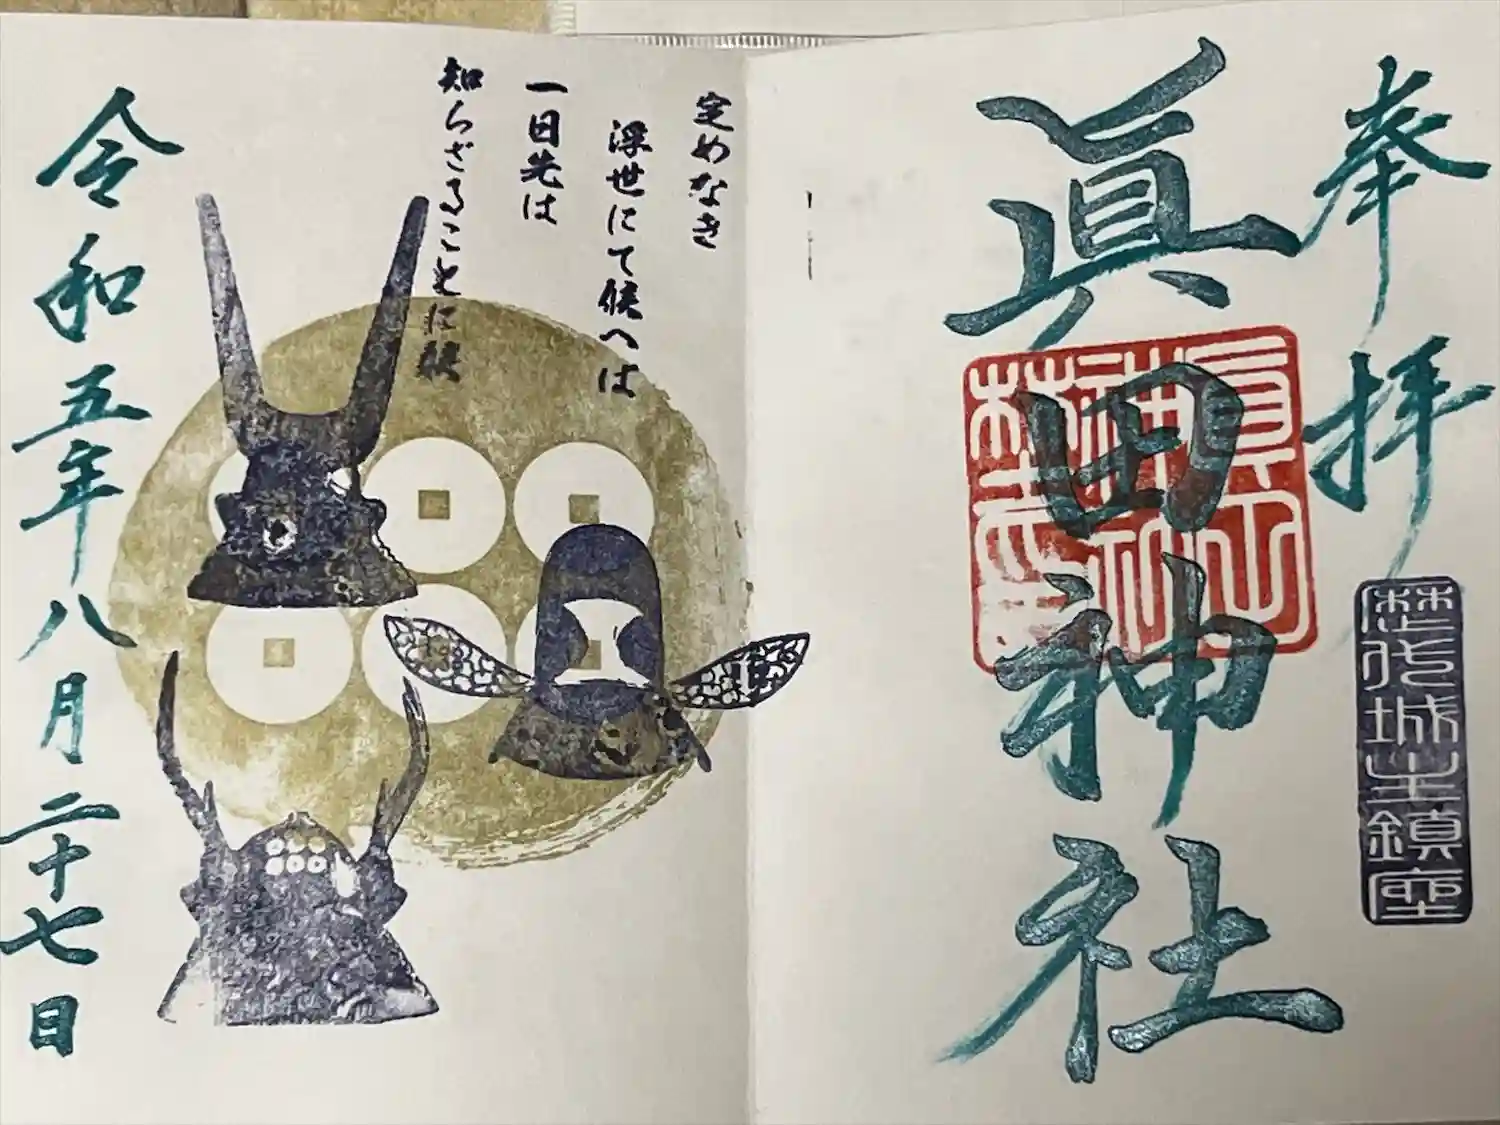 奉拝
眞田神社
歴代城主鎮座
定めなき
浮世にて候へは
一日先は
知らざることに候
令和五年八月二十七日